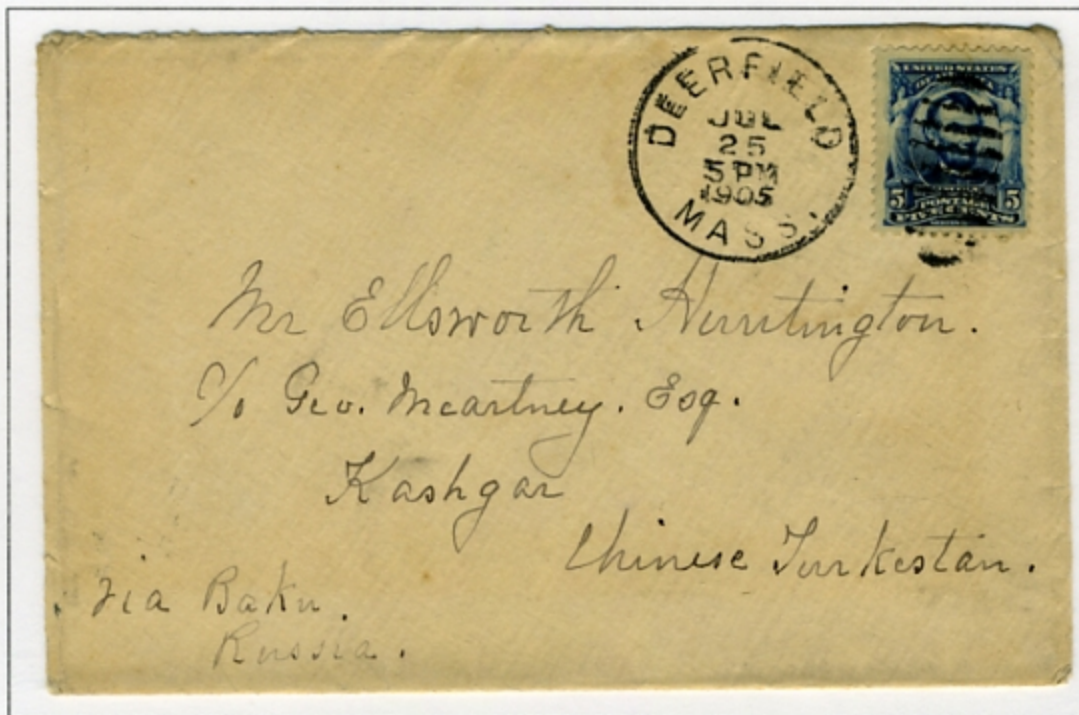 DEERFIELD
JUL
25
5 PM
1905
MASS.
UNITED STATES
5 POSTAGE 5
FIVE CENTS
Mr Ellsworth Huntington.
c/o Geo. Mcartney. Esq.
Kashgar
Chinese Turkestan.
Via Baku.
Russia.